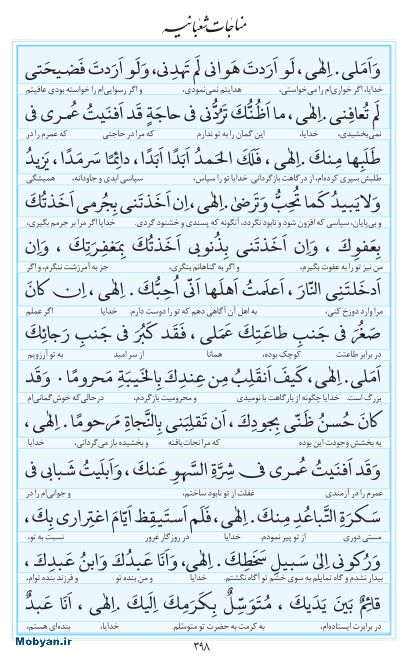 مناجات شعبانیه
وَاَمَلی. اِلٰهی، لَو اَرَدتَ هَوانی لَم تَهدِنی، وَلَو اَرَدتَ فَضیحَتی
خدایا، اگر خواری‌ام را می‌خواستی، هدایتم نمی‌نمودی، و اگر رسوایی‌ام را خواسته بودی عافیتم
لَم تُعافِنی. اِلٰهی، ما اَظُنُّكَ تَرُدُّنی فی حاجَةٍ قَد اَفنَیتُ عُمری فی
نمی‌بخشیدی، خدایا، این گمان را به تو ندارم که مرا در حاجتی که عمرم را در
طَلَبِها مِنكَ. اِلٰهی، فَلَكَ الحَمدُ اَبَدًا اَبَدًا، دائِمًا سَرمَدًا، یَزیدُ
طلبش سپری کرده‌ام، از درگاهت بازگردانی. خدایا تو را سپاس، سپاسی ابدی و جاودانه، همیشگی
وَلایَبیدُ كَما تُحِبُّ وَتَرضیٰ. اِلٰهی، اِن اَخَذتَنی بِجُرمی اَخَذتُكَ
و بی‌پایان، سپاسی که افزون شود و نابود نگردد، آنگونه که پسندی و خشنود گردی. خدایا اگر مرا بر جرمم بگیری،
بِعَفوِكَ، وَاِن اَخَذتَنی بِذُنوبی اَخَذتُكَ بِمَغفِرَتِكَ، وَاِن
من نیز تو را به عفوت بگیرم، و اگر به گناهانم بنگری، جز به آمرزشت ننگرم، و اگر
اَدخَلتَنِی النّارَ، اَعلَمتُ اَهلَها اَنّی اُحِبُّكَ. اِلٰهی، اِن كانَ
مرا وارد دوزخ کنی، به اهل آن آگاهی دهم که تو را دوست دارم. خدایا اگر عملم
صَغُرَ فی جَنبِ طاعَتِكَ عَمَلی، فَقَد كَبُرَ فی جَنبِ رَجائِكَ
در برابر طاعتت کوچک بوده، همانا از سر امید به تو آرزویم
اَمَلی. اِلٰهی، كَیفَ اَنقَلِبُ مِن عِندِكَ بِالخَیبَةِ مَحرومًا، وَقَد
بزرگ است. خدایا چگونه از بارگاهت با نومیدی و محرومیت بازگردم، درحالی‌که خوش گمانی‌ام
كانَ حُسنُ ظَنّی بِجودِكَ، اَن تَقلِبَنی بِالنَّجاةِ مَرحومًا. اِلٰهی،
به بخشش وجودت این بوده که مرا نجات‌یافته و بخشیده بازمی‌گردانی، خدایا
وَقَد اَفنَیتُ عُمری فی شِرَّةِ السَّهوِ عَنكَ، وَاَبلَیتُ شَبابی فی
عمرم را در آزمندی غفلت از تو نابود ساختم، و جوانی‌ام را در
سَكرَةِ التَّباعُدِ مِنكَ. اِلٰهی، فَلَم اَستَیقِظ اَیّامَ اغتِراری بِكَ،
مستی دوری از تو پیر نمودم. خدایا در روزگار غرور نسبت به تو،
وَرُكونی اِلیٰ سَبیلِ سَخَطِكَ. اِلٰهی، وَاَنَا عَبدُكَ وَابنُ عَبدِكَ،
بیدار نشدم و گاه تمایلم به سوی خشم تو آگاه نگشتم. خدایا و من بنده تو و فرزند بنده توام،
قائِمٌ بَینَ یَدَیكَ، مُتَوَسِّلٌ بِكَرَمِكَ اِلَیكَ. اِلٰهی، اَنَا عَبدٌ
در برابرت ایستاده‌ام، به کرمت به حضرت تو متوسّلم. خدایا، بنده‌ای هستم،
۳۹۸
Mobyan.ir